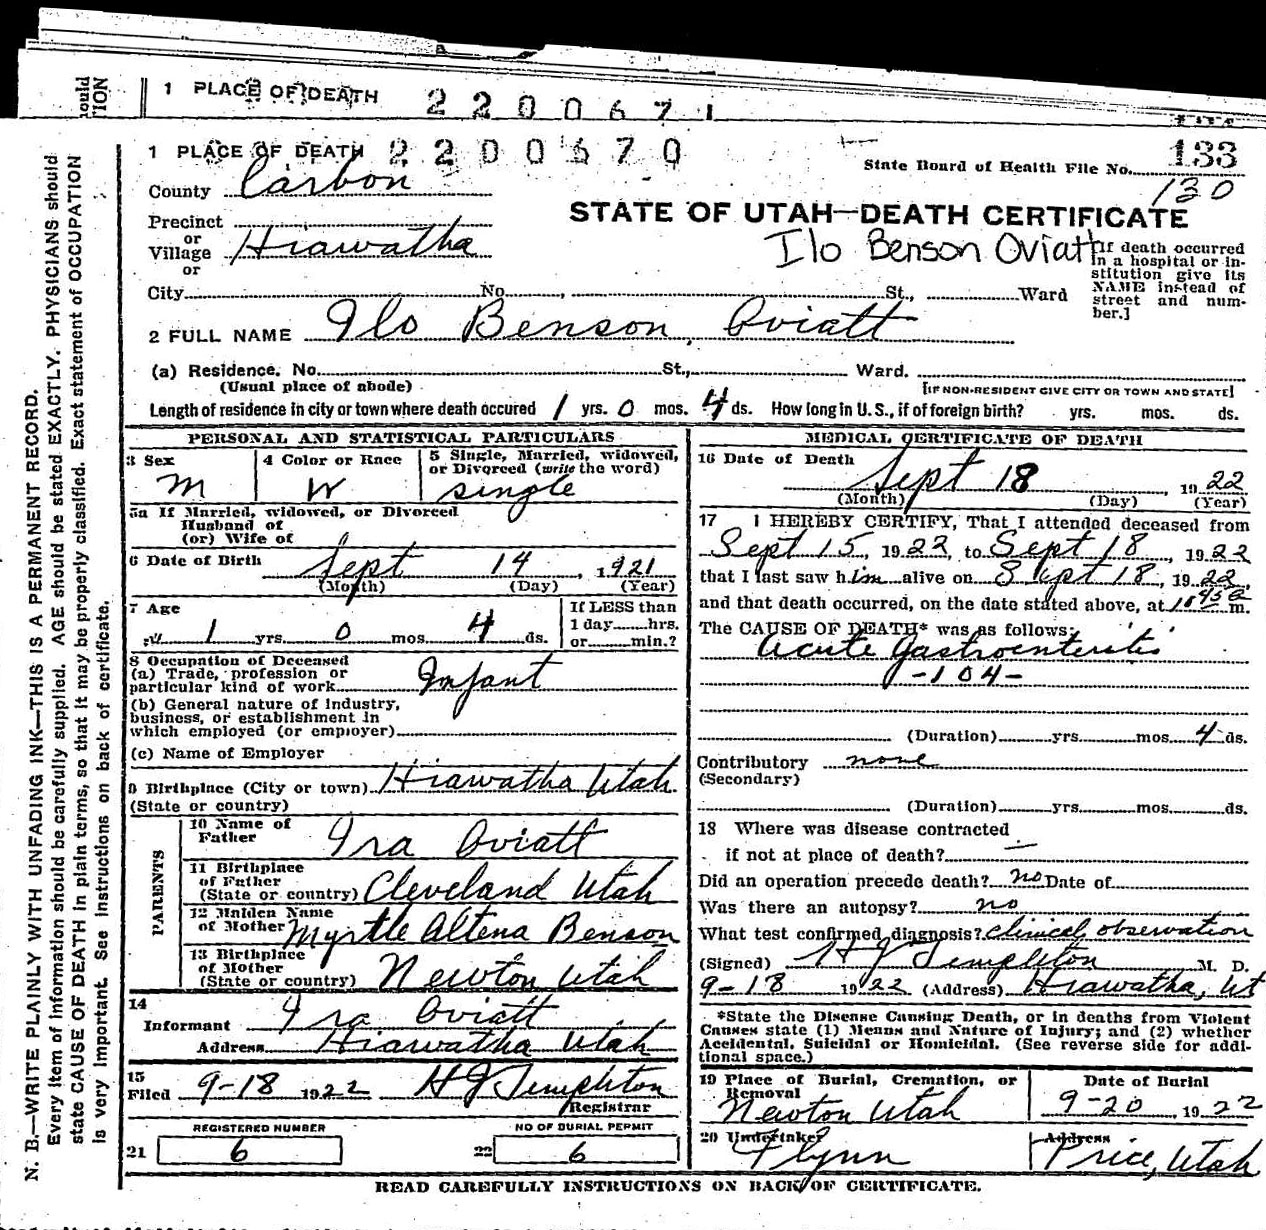 1 PLACE OF DEATH 2200671
1 PLACE OF DEATH 2200670
State Board of Health File No. 133
130
County Carbon
STATE OF UTAH—DEATH CERTIFICATE
Precinct
or
Village Hiawatha
or
Ilo Benson Oviatt
[If death occurred in a hospital or institution give its NAME instead of street and number.]
City No. , St., Ward
2 FULL NAME Ilo Benson Oviatt
(a) Residence. No. St., Ward.
(Usual place of abode) [IF NON-RESIDENT GIVE CITY OR TOWN AND STATE]
Length of residence in city or town where death occured 1 yrs. 0 mos. 4 ds. How long in U. S., if of foreign birth? yrs. mos. ds.
PERSONAL AND STATISTICAL PARTICULARS
3 Sex M
4 Color or Race W
5 Single, Married, widowed, or Divorced (write the word) single
5a If Married, widowed, or Divorced
Husband of
(or) Wife of
6 Date of Birth Sept 14, 1921
(Month) (Day) (Year)
7 Age
1 yrs. 0 mos. 4 ds.
If LESS than
1 day hrs.
or min.?
8 Occupation of Deceased
(a) Trade, profession or
particular kind of work Infant
(b) General nature of industry,
business, or establishment in
which employed (or employer)
(c) Name of Employer
9 Birthplace (City or town) Hiawatha Utah
(State or country)
PARENTS
10 Name of
Father Ira Oviatt
11 Birthplace
of Father
(State or country) Cleveland Utah
12 Maiden Name
of Mother Myrtle Altena Benson
13 Birthplace
of Mother
(State or country) Newton Utah
14
Informant Ira Oviatt
Address Hiawatha Utah
15
Filed 9-18 1922 H J Templeton
Registrar
REGISTERED NUMBER
21 6
NO OF BURIAL PERMIT
22 6
MEDICAL CERTIFICATE OF DEATH
16 Date of Death
Sept 18, 1922
(Month) (Day) (Year)
17 I HEREBY CERTIFY, That I attended deceased from
Sept 15, 1922, to Sept 18, 1922
that I last saw him alive on Sept 18, 1922,
and that death occurred, on the date stated above, at 10 45 a m.
The CAUSE OF DEATH* was as follows:
Acute Gastroenteritis
-104-
(Duration) yrs. mos. 4 ds.
Contributory none
(Secondary)
(Duration) yrs. mos. ds.
18 Where was disease contracted
if not at place of death? —
Did an operation precede death? no Date of
Was there an autopsy? no
What test confirmed diagnosis? clinical observation
(Signed) H J Templeton M. D.
9-18 1922 (Address) Hiawatha, Ut
*State the Disease Causing Death, or in deaths from Violent
Causes state (1) Means and Nature of Injury; and (2) whether
Accidental, Suicidal or Homicidal. (See reverse side for addi-
tional space.)
19 Place of Burial, Cremation, or
Removal
Newton Utah
Date of Burial
9-20, 1922
20 Undertaker
Flynn
Address
Price, Utah
READ CAREFULLY INSTRUCTIONS ON BACK OF CERTIFICATE.
N. B.—WRITE PLAINLY WITH UNFADING INK—THIS IS A PERMANENT RECORD.
Every item of information should be carefully supplied. AGE should be stated EXACTLY. PHYSICIANS should
state CAUSE OF DEATH in plain terms, so that it may be properly classified. Exact statement of OCCUPATION
is very important. See instructions on back of certificate.